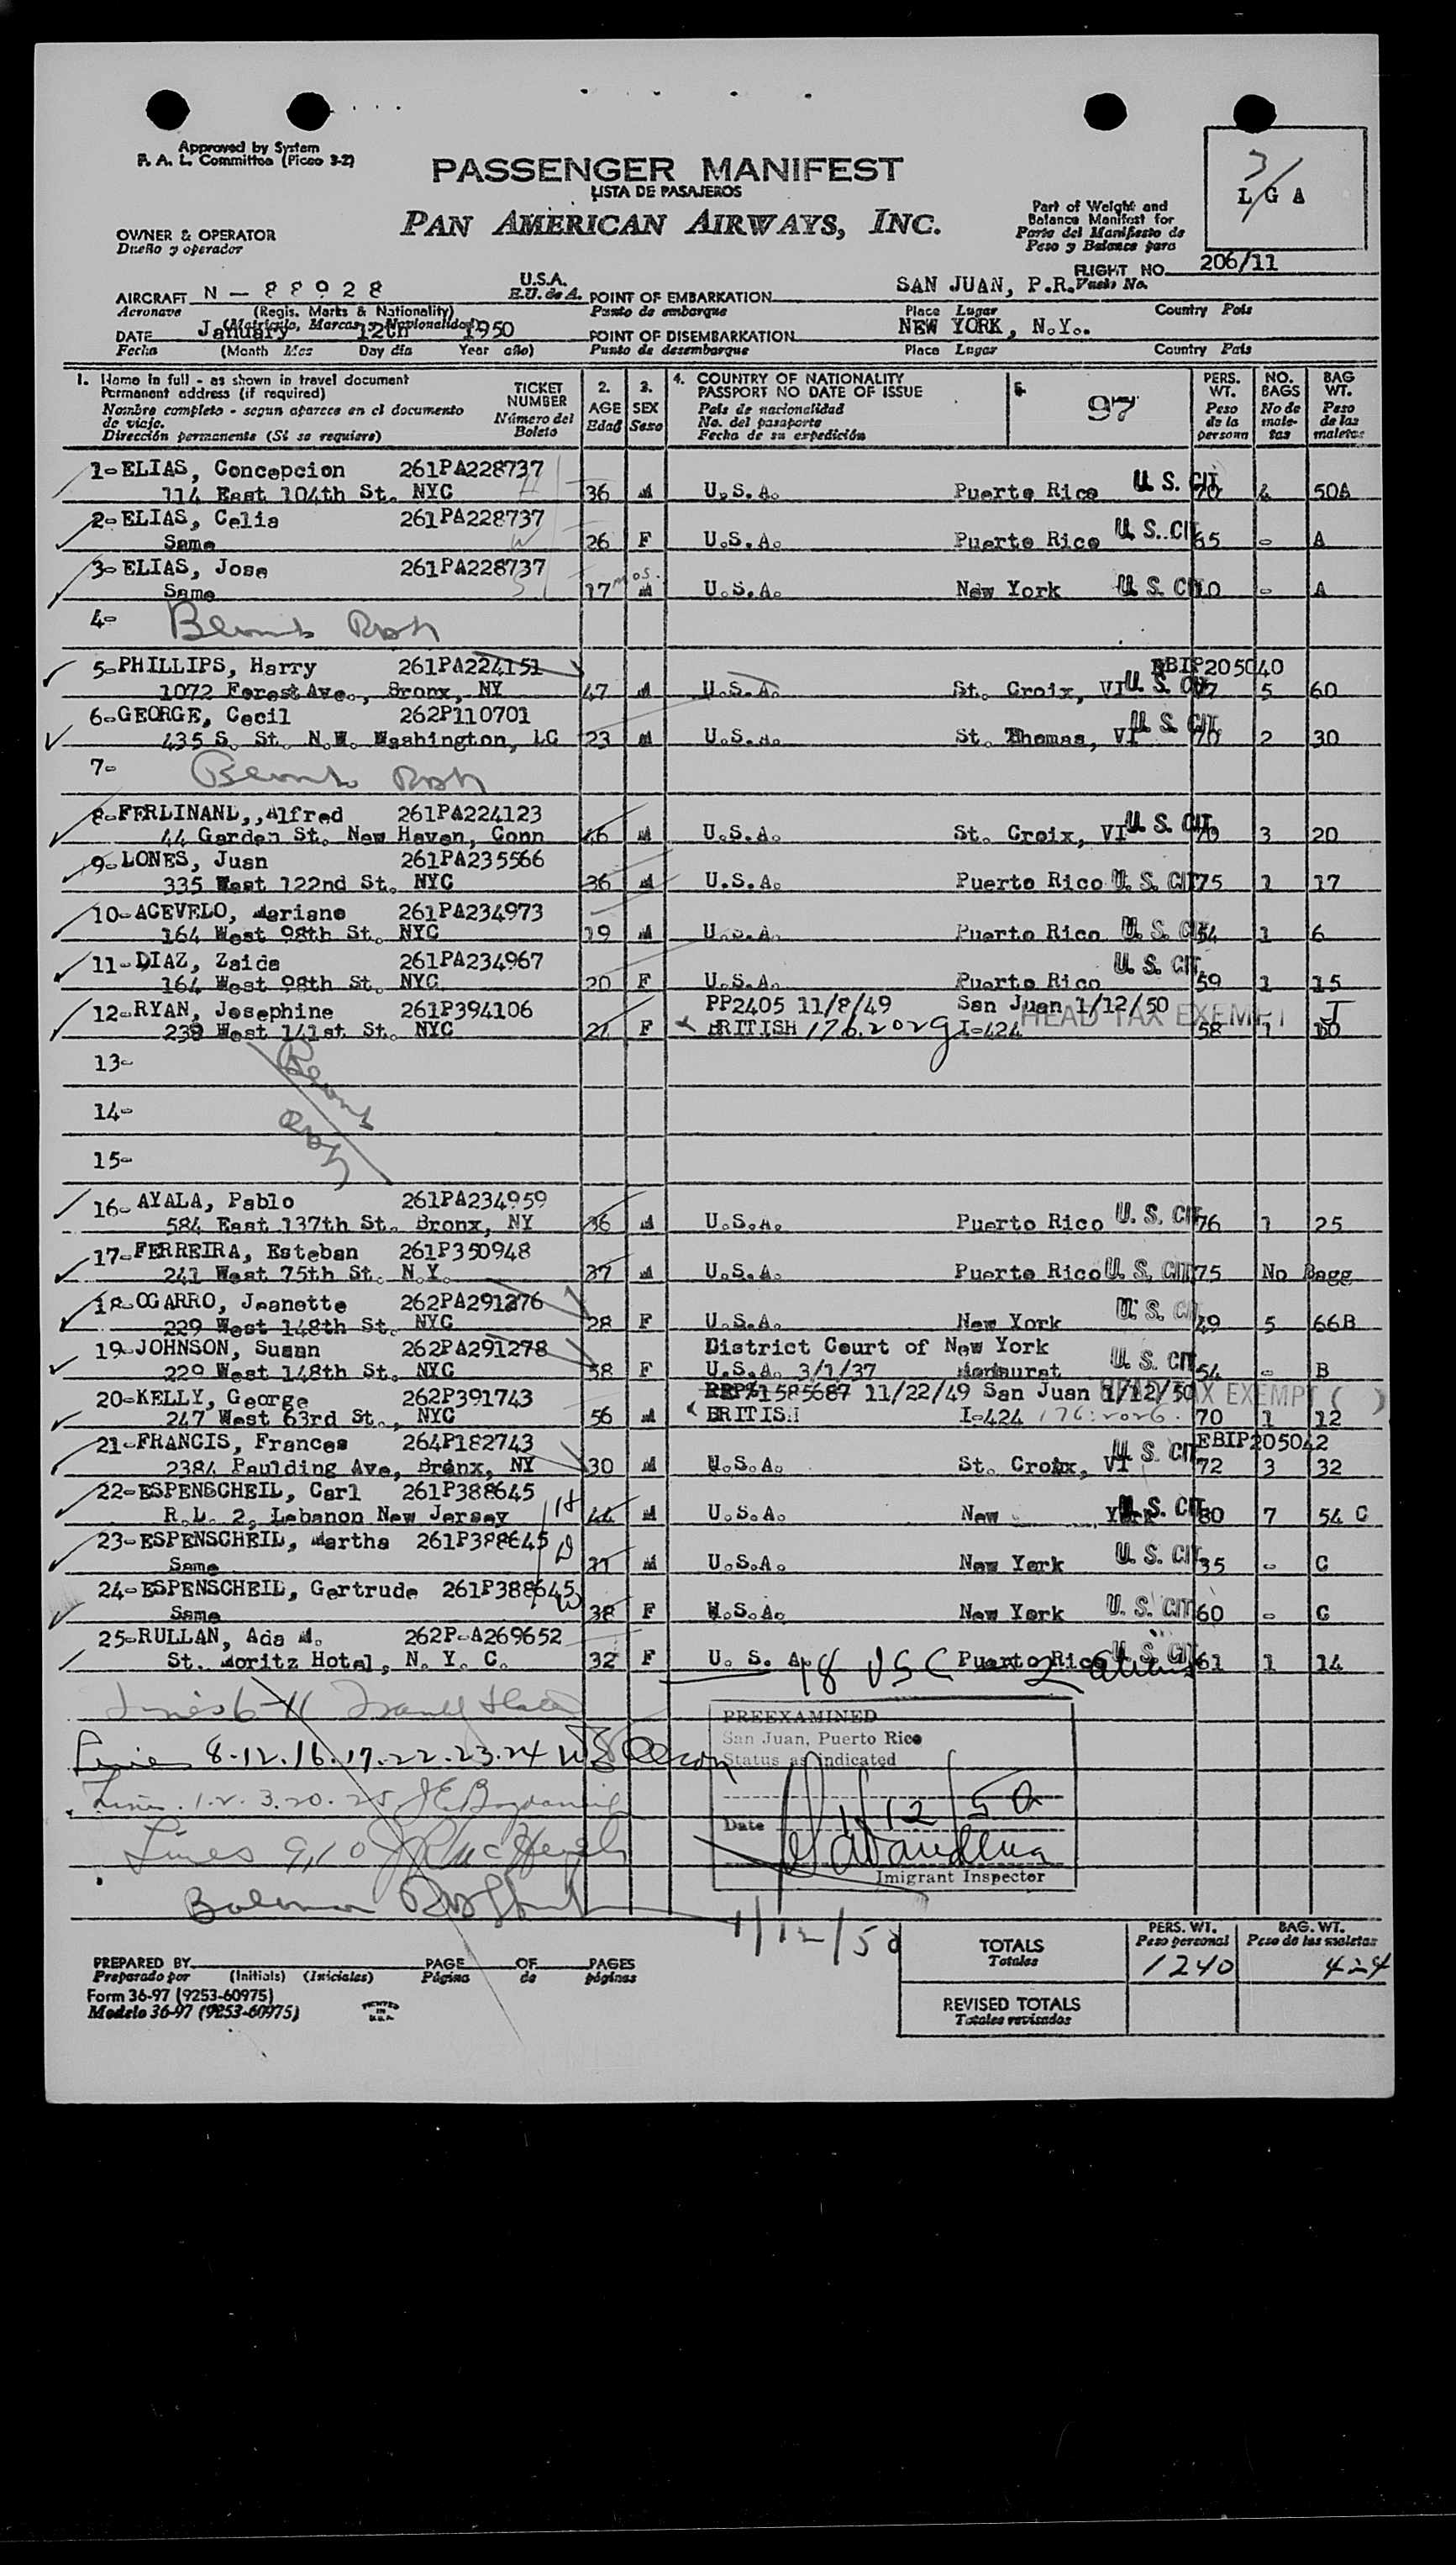 Approved by System
P. A. L. Committee (Picao 3-2)
PASSENGER MANIFEST
LISTA DE PASAJEROS
PAN AMERICAN AIRWAYS, INC.
L G A
Part of Weight and
Balance Manifest for
Parte del Manifiesto de
Peso y Balance para
OWNER & OPERATOR
Dueño y operador
FLIGHT NO. 206/11
Vuelo No.
AIRCRAFT N - 88928 U.S.A.
Aeronave (Regis. Marks & Nationality) E.U. de A.
(Matricula, Marcas y Nacionalidad)
POINT OF EMBARKATION SAN JUAN, P.R.
Punto de embarque Place Lugar Country Pais
DATE January 12th 1950
Fecha (Month Mes Day dia Year año)
POINT OF DISEMBARKATION NEW YORK, N.Y..
Punto de desembarque Place Lugar Country Pais
1. Name in full - as shown in travel document
Permanent address (if required)
Nombre completo - segun aparece en el documento
de viaje.
Dirección permanente (Si se requiere)
TICKET
NUMBER
Número del
Boleto
2.
AGE
Edad
3.
SEX
Sexo
4. COUNTRY OF NATIONALITY
PASSPORT NO DATE OF ISSUE
Pais de nacionalidad
No. del pasaporte
Fecha de su expedición
5.
97
PERS.
WT.
Peso
de la
persona
NO.
BAGS
No de
male-
tas
BAG
WT.
Peso
de las
maletas
1-ELIAS, Concepcion 261PA228737
114 East 104th St. NYC 36 M U.S.A. Puerto Rico U. S. CIT 70 4 50A
2-ELIAS, Celia 261PA228737
Same 26 F U.S.A. Puerto Rico U. S. CIT 65 - A
3-ELIAS, Jose 261PA228737
Same 17 mos. M U.S.A. New York U. S. CIT 10 - A
4-
5-PHILLIPS, Harry 261PA224151 EBIP205040
1072 Forest Ave., Bronx, NY 47 M U.S.A. St. Croix, VI U. S. CIT 5 60
6-GEORGE, Cecil 262P110701
435 S. St. N.W. Washington, DC 23 M U.S.A. St. Thomas, VI U. S. CIT 70 2 30
7-
8-FERLINAND,,Alfred 261PA224123
44 Garden St. New Haven, Conn 46 M U.S.A. St. Croix, VI U. S. CIT 70 3 20
9-LONES, Juan 261PA235566
335 West 122nd St. NYC 36 M U.S.A. Puerto Rico U. S. CIT 75 1 17
10-ACEVELO, Mariano 261PA234973
164 West 98th St. NYC 19 M U.S.A. Puerto Rico U. S. CIT 54 1 6
11-DIAZ, Zaida 261PA234967
164 West 98th St. NYC 20 F U.S.A. Puerto Rico U. S. CIT 59 1 15
12-RYAN, Josephine 261P394106 PP2405 11/8/49 San Juan 1/12/50
239 West 141st. St. NYC 24 F BRITISH I-424 HEAD TAX EXEMPT 58 1 10
13-
14-
15-
16-AYALA, Pablo 261PA234959
584 East 137th St. Bronx, NY 36 M U.S.A. Puerto Rico U. S. CIT 76 1 25
17-FERREIRA, Esteban 261P350948
241 West 75th St. N.Y. 37 M U.S.A. Puerto Rico U. S. CIT 75 No Bagg
18-OGARRO, Jeanette 262PA291276
229 West 148th St. NYC 28 F U.S.A. New York U. S. CIT 49 5 66B
19-JOHNSON, Susan 262PA291278 District Court of New York
229 West 148th St. NYC 58 F U.S.A. 3/1/37 U. S. CIT 54 - B
20-KELLY, George 262P391743 1585687 11/22/49 San Juan 1/12/50 HEAD TAX EXEMPT ( )
247 West 63rd St., NYC 56 M BRITISH I-424 70 1 12
21-FRANCIS, Frances 264P182743 EBIP205042
2384 Paulding Ave, Bronx, NY 30 M U.S.A. St. Croix, VI U. S. CIT 72 3 32
22-ESPENSCHEIL, Carl 261P388645
R.L. 2, Lebanon New Jersey 44 M U.S.A. New York U. S. CIT 80 7 54 C
23-ESPENSCHEIL, Martha 261P388645
Same 11 M U.S.A. New York U. S. CIT 35 - C
24-ESPENSCHEIL, Gertrude 261P388645
Same 38 F U.S.A. New York U. S. CIT 60 - C
25-RULLAN, Ada M. 262P-A269652
St. Moritz Hotel, N. Y. C. 32 F U. S. A. Puerto Rico U. S. CIT 61 1 14
18 USC 2 aliens
Lines 8-12.16.17.22.23.24
Lines 1.2.3.20.25
Lines 9,10
PREEXAMINED
San Juan, Puerto Rico
Status as indicated
Date 1/12/50
Imigrant Inspector
1/12/50
PREPARED BY PAGE OF PAGES
Preparado por (Initials) (Iniciales) Página de páginas
Form 36-97 (9253-60975)
Modelo 36-97 (9253-60975)
PRINTED
IN
U.S.A.
TOTALS
Totales
PERS. WT.
Peso personal
1240
BAG. WT.
Peso de las maletas
424
REVISED TOTALS
Totales revisados